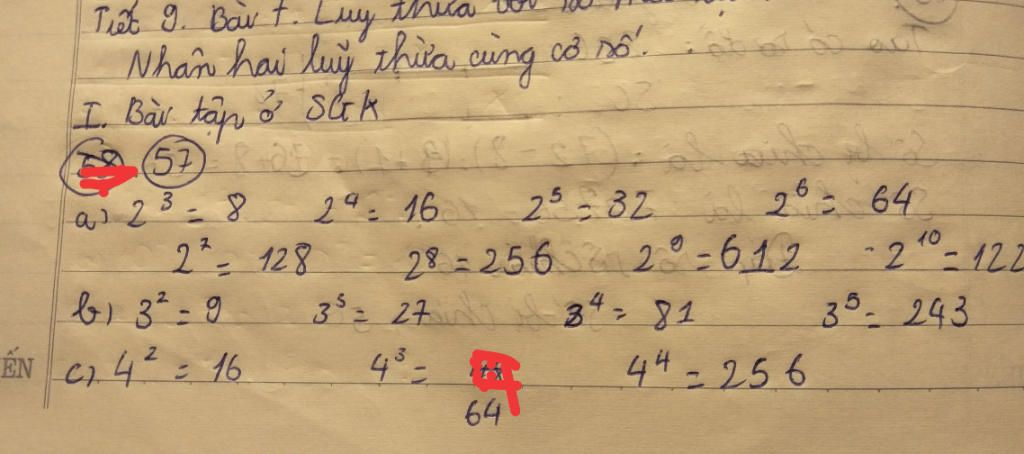 Tiết 9. Bài 7. Luỹ thừa với số mũ
Nhân hai luỹ thừa cùng cơ số.
I. Bài tập ở SGK
58 57
a) 2³ = 8 2⁴ = 16 2⁵ = 32 2⁶ = 64
2⁷ = 128 2⁸ = 256 2⁹ = 612 2¹⁰ = 122
b) 3² = 9 3³ = 27 3⁴ = 81 3⁵ = 243
ẾN c) 4² = 16 4³ = 4⁴ = 256
64